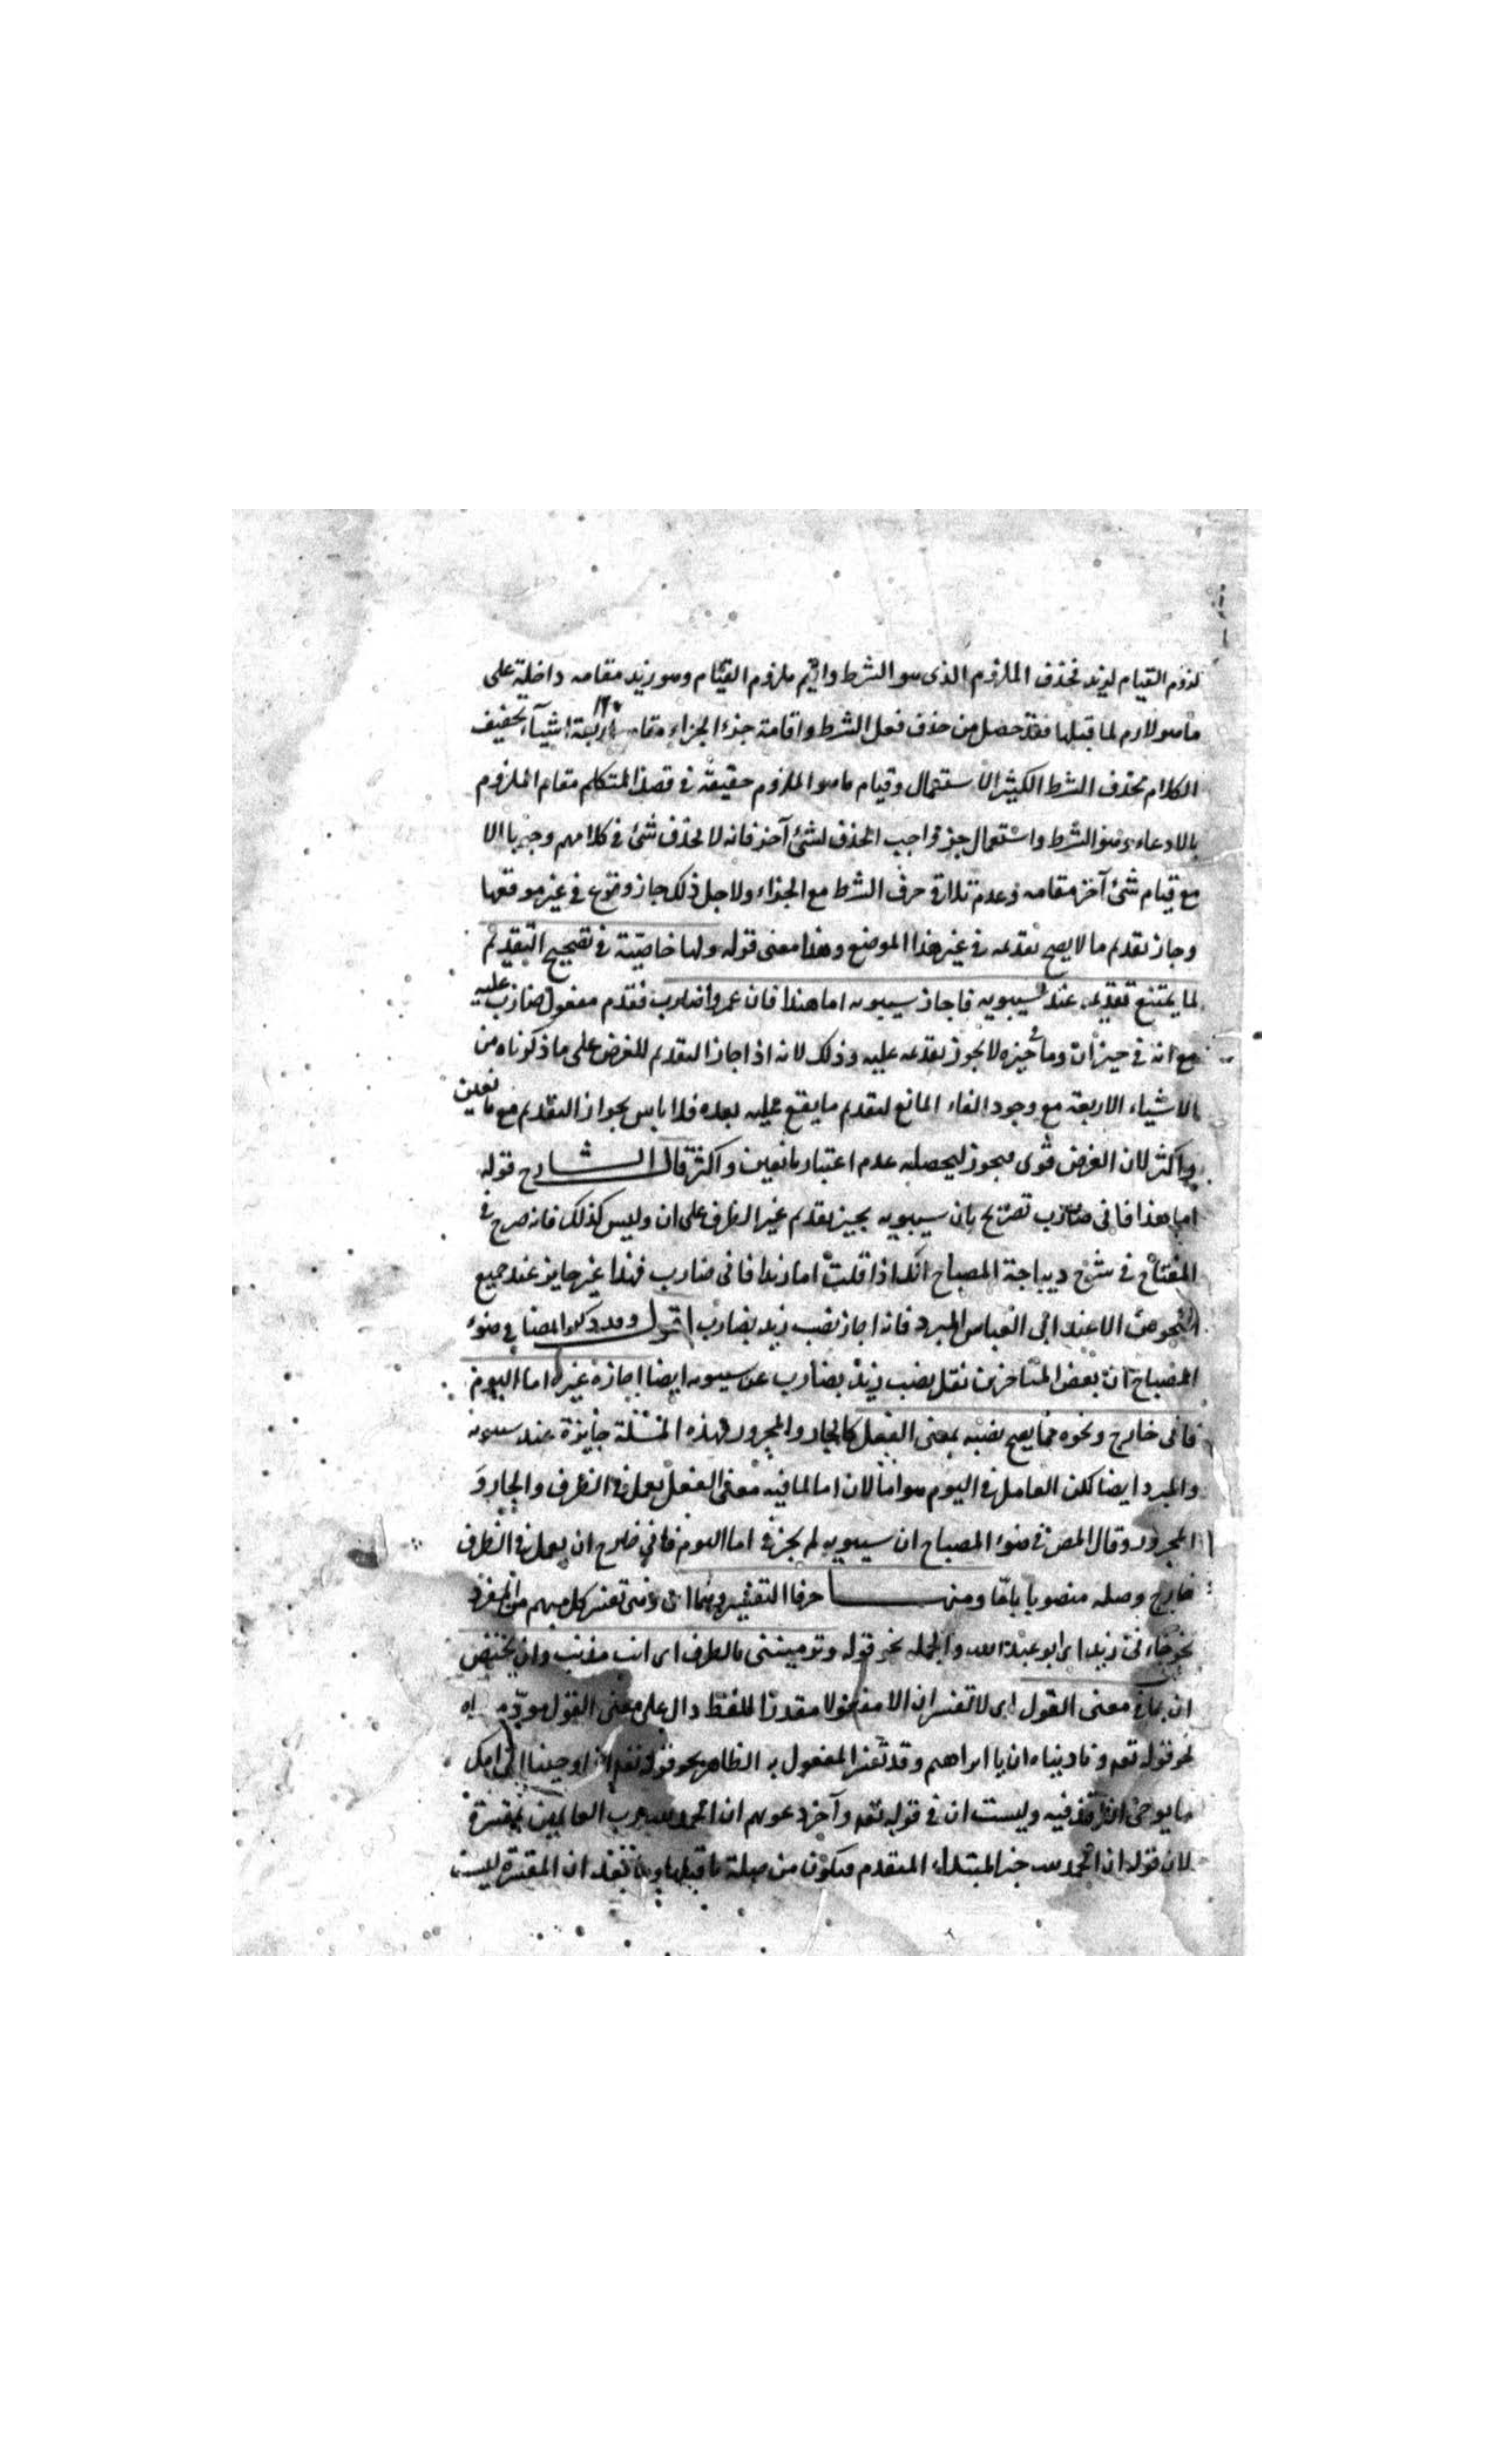 لزوم القيام لزيد فحذف الملزوم الذى هو الشرط واقيم ملزوم القيام وهو زيد مقامه داخلة على
ما هو لازم لما قبلها فقد حصل من حذف فعل الشرط واقامة جزء الجزاء مقامه اربعة اشياء تخفيف
الكلام بحذف الشرط الكثير الاستعمال وقيام ما هو الملزوم حقيقة فى قصد المتكلم مقام الملزوم
بالادعاء وهو الشرط واستعمال جزء واجب الحذف لشئ آخر فانه لا يحذف شئ فى كلامهم وجوبا الا
مع قيام شئ آخر مقامه وعدم تلاقى حرف الشرط مع الجزاء ولاجل ذلك جاز وقوع فى غير موقعها
وجاز تقديم ما لا يصح تقديمه فى غير هذا الموضع وهذا معنى قوله ولها خاصية فى تصحيح التقديم
لما يمتنع تقديمه عند سيبويه فاجاز سيبويه اما هندا فان عمروا ضارب فقدم مفعول ضارب عليه
مع انه فى حيز ان وما فى حيزه لا يجوز تقديمه عليه وذلك لانه اذا جاز التقديم للغرض على ما ذكرناه من
الاشياء الاربعة مع وجود الفاء المانع لتقديم ما يقع عليه بعده فلا باس بجواز التقديم مع مانعين
واكثر لان الغرض قوى فيجوز ليحصله عدم اعتبار مانعين واكثر قال الشارح قوله
اما هذا فانى ضارب تصريح بان سيبويه يجيز تقديم غير الظرف على ان وليس كذلك فانه صرح فى
المفتاح فى شرح ديباجة المصباح انك اذا قلت اما زيدا فانى ضارب فهذا غير جايز عند جميع
النحويين الا عند ابى العباس المبرد فانه اجاز نصب زيد بضارب اقول وقد ذكر المصنف فى ضوء
المصباح ان بعض المتاخرين نقل نصب زيد بضارب عن سيبويه ايضا اجازة غيره اما اليوم
فانى خارج ونحوه مما يصح نصبه بمعنى الفعل كالجار والمجرور فهذه المسئلة جايزة عند سيبويه
والمبرد ايضا لكن العامل فى اليوم هو اما لان اما لما فيه معنى الفعل يعمل فى الظرف والجار و
المجرور وقال المص فى ضوء المصباح ان سيبويه لم يجز فى اما اليوم فانى خارج ان يعمل فى الظرف
خارج وجعله منصوبا باما ومنها حرفا التفسير وهما اى وان تفسر كل مبهم من المفرد
نحو جاءنى زيد اى ابو عبد الله والجملة نحو قوله وترميننى بالطرف اى انت مذنب وان يختص
ان بما فى معنى القول اى لا تفسر ان الا مفعولا مقدرا للفظ دال على معنى القول
نحو قوله تعه وناديناه ان يا ابراهيم وقد تفسر المفعول به الظاهر نحو قوله تعه اذ اوحينا الى امك
ما يوحى ان اقذفيه وليست ان فى قوله تعه وآخر دعويهم ان الحمد لله رب العالمين بمفسرة
لان قوله ان الحمد لله خبر المبتداء المتقدم فيكون من صلة ما قبلها وما بعد ان المفسرة ليست